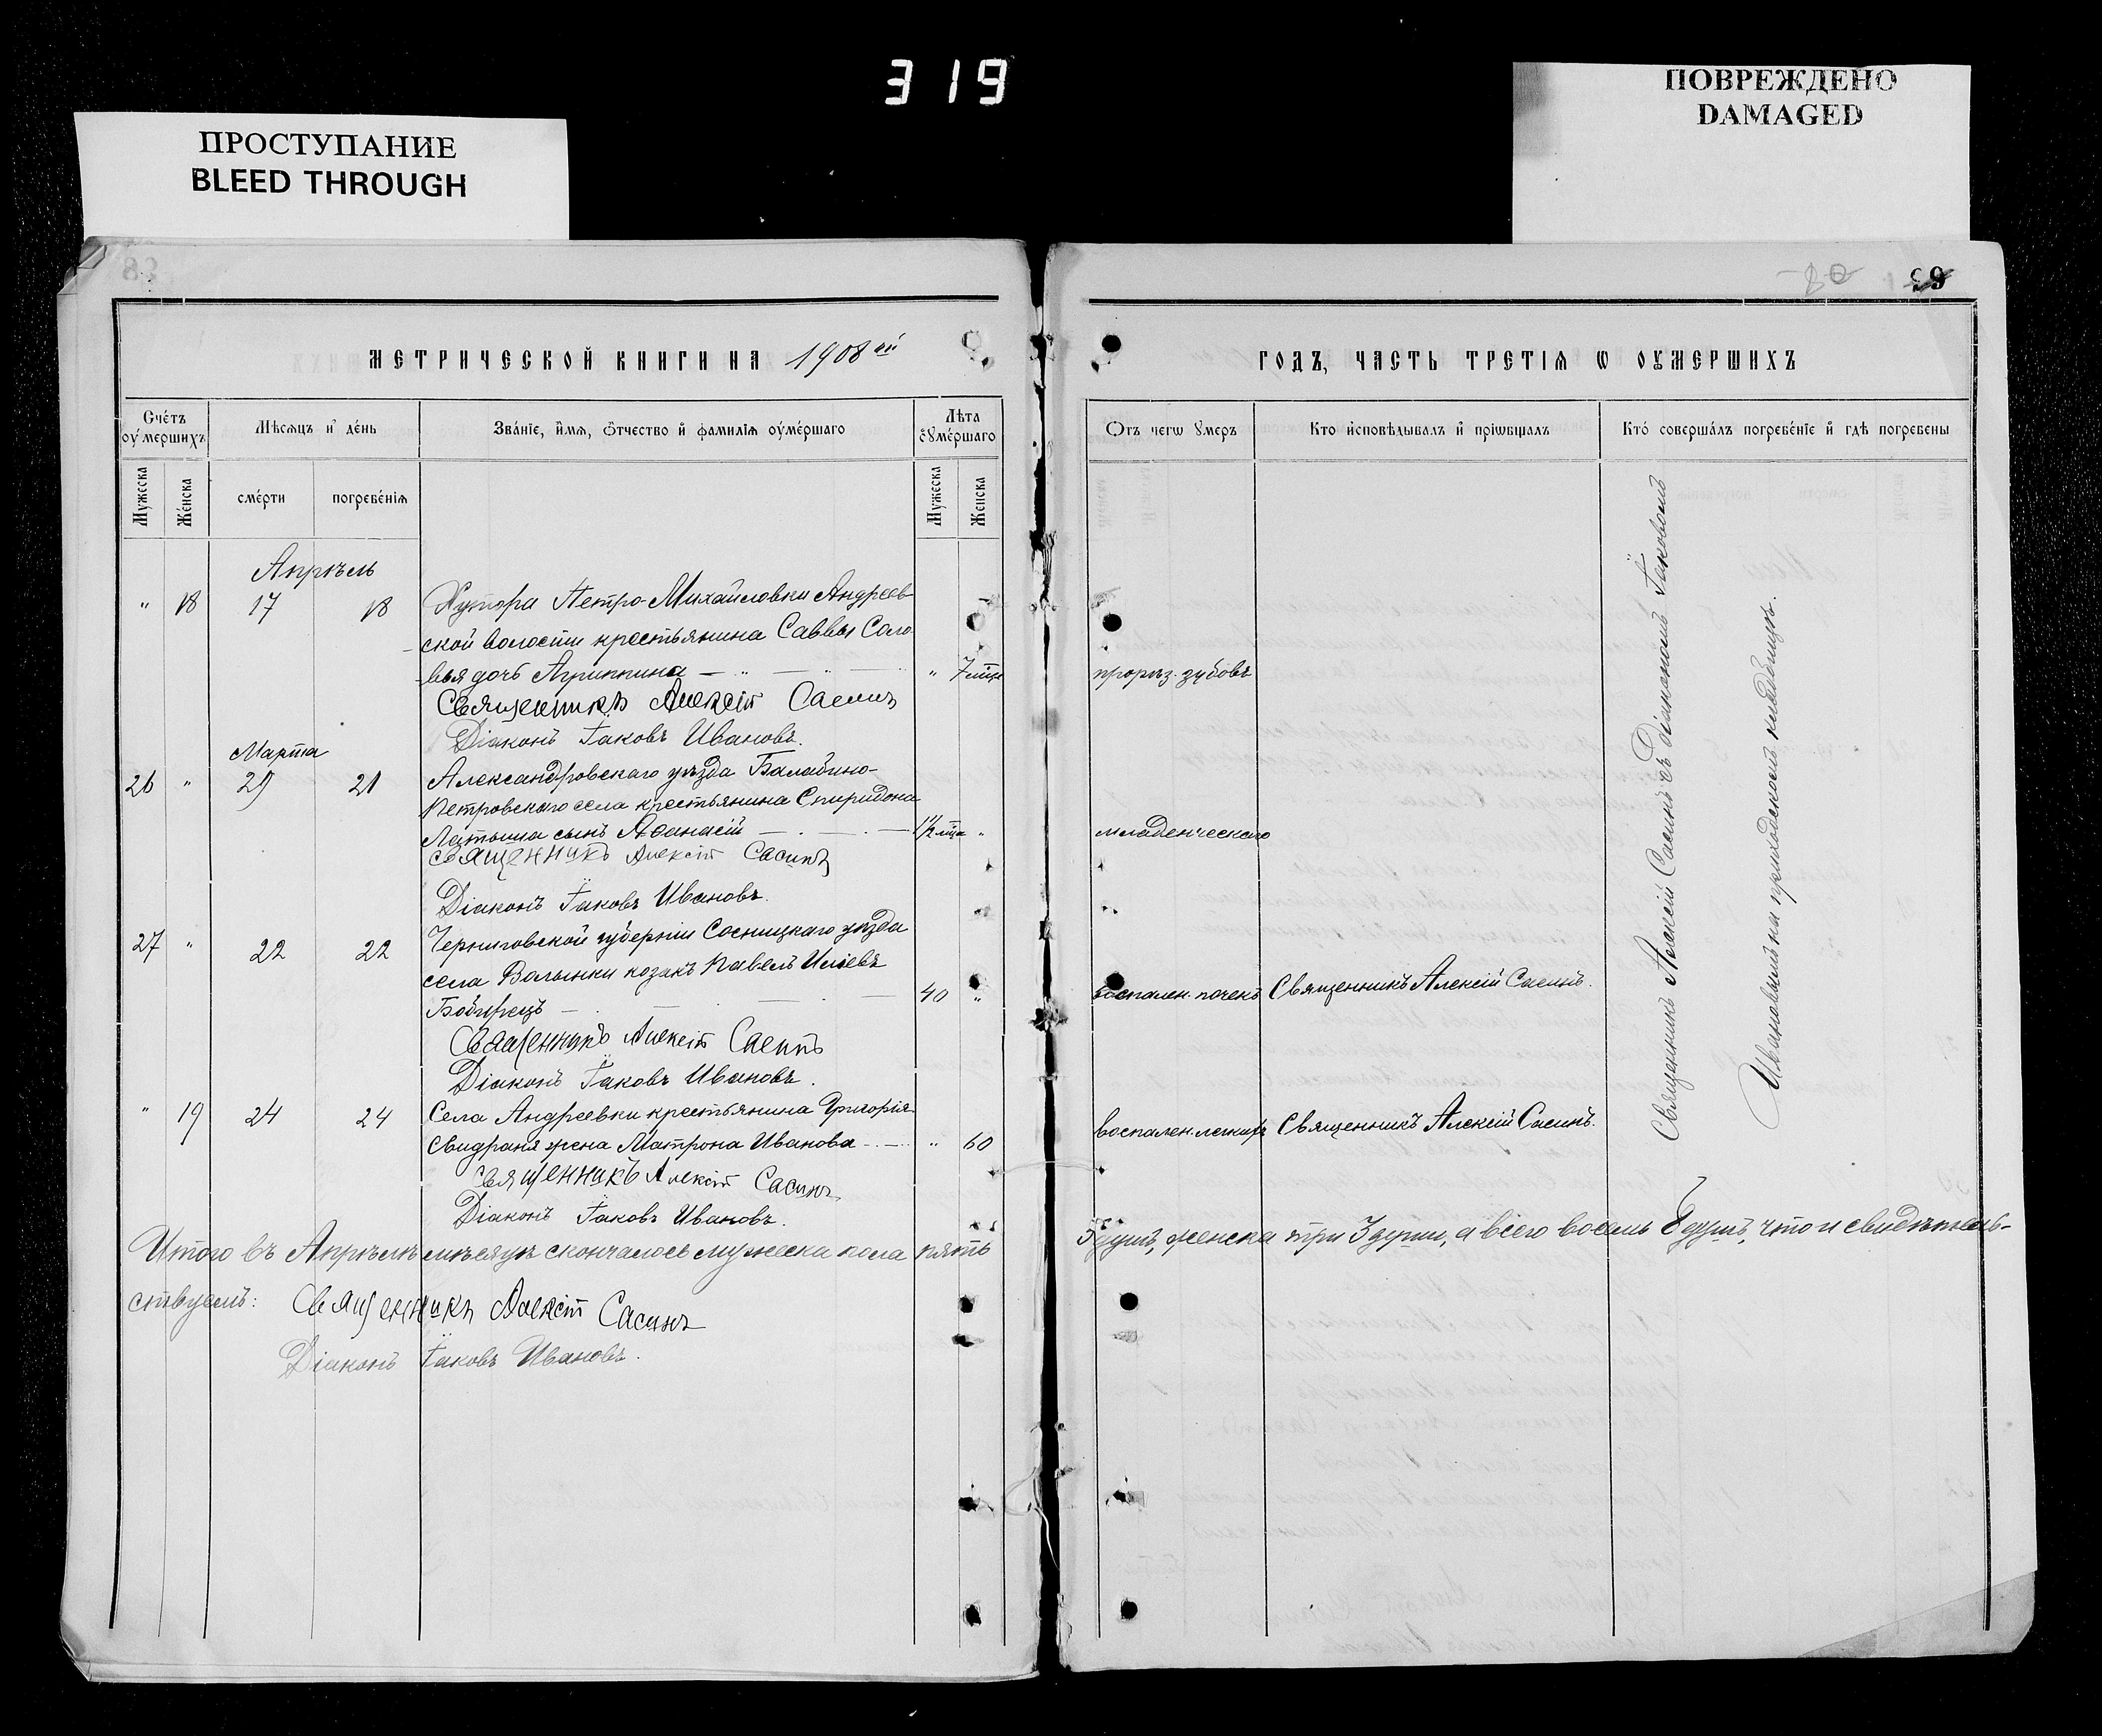 319
ПРОСТУПАНИЕ
BLEED THROUGH
ПОВРЕЖДЕНО
DAMAGED
59
МЕТРИЧЕСКОЙ КНИГИ НА 1908 ый
ГОДЪ, ЧАСТЬ ТРЕТІЯ Ѡ ОУМЕРШИХЪ
Счétъ оумершихъ
Мѣсяцъ и день
Званіе, имя, отчество и фамилія оумершаго
Лѣта оумершаго
Отъ чегѡ умеръ
Кто исповѣдывалъ и пріѡбщалъ
Кто совершалъ погребеніе и гдѣ погребены
Мужеска
Женска
смерти
погребенія
Мужеска
Женска
Апрѣль
" 18 17 18 Хутора Петро-Михайловки Андреев-
ской волости крестьянина Саввы Соло-
вья дочь Агриппина " 7 мц прорѣз. зубовъ
Священникъ Алексій Сасинъ
Діаконъ Іаковъ Ивановъ.
Марта
26 " 29 21 Александровскаго уѣзда Балабино-
Петровскаго села крестьянина Спиридона
Латыша сынъ Аѳанасій 1½ мца " младенческаго
Священникъ Алексій Сасинъ
Діаконъ Іаковъ Ивановъ.
27 " 22 22 Черниговской губерніи Сосницкаго уѣзда
села Волынки козакъ Павелъ Иліевъ
Бобырецъ 40 " воспален. почекъ Священникъ Алексій Сасинъ.
Священникъ Алексій Сасинъ
Діаконъ Іаковъ Ивановъ.
" 19 24 24 Села Андреевки крестьянина Григорія
Свидраня жена Матрона Иванова " 60 воспален. легкихъ Священникъ Алексій Сасинъ.
Священникъ Алексій Сасинъ
Діаконъ Іаковъ Ивановъ.
Священникъ Алексій Сасинъ съ Діакономъ Іаковомъ
Ивановымъ на приходскомъ кладбищѣ.
Итого въ Апрѣлѣ мѣсяцѣ скончалось мужеска пола пять 5 душъ, женска три 3 души, а всего восемь 8 душъ, что и свидѣтель-
ствуемъ: Священникъ Алексій Сасинъ
Діаконъ Іаковъ Ивановъ.